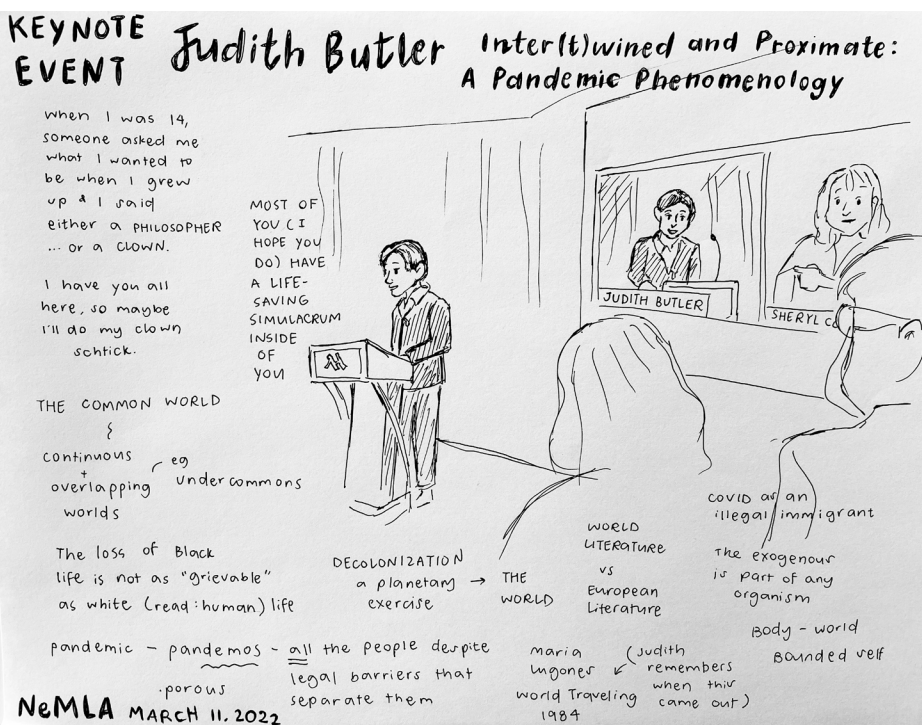 KEYNOTE EVENT
Judith Butler
Inter(t)wined and Proximate:
A Pandemic Phenomenology
when I was 14,
someone asked me
what I wanted to
be when I grew
up & I said
either a PHILOSOPHER
... or a CLOWN.
I have you all
here, so maybe
I'll do my clown
schtick.
MOST OF
YOU (I
HOPE YOU
DO) HAVE
A LIFE-
SAVING
SIMULACRUM
INSIDE
OF
YOU
JUDITH BUTLER
SHERYL C
THE COMMON WORLD
continuous
+
overlapping
worlds
eg
undercommons
The loss of Black
life is not as "grievable"
as white (read: human) life
DECOLONIZATION
a planetary
exercise
→ THE
WORLD
WORLD
LITERATURE
vs
European
Literature
COVID as an
illegal immigrant
The exogenous
is part of any
organism
Body - world
Bounded self
pandemic - pandemos - all the people despite
legal barriers that
separate them
.porous
maria
lugones
world Traveling
1984
(Judith
remembers
when this
came out)
NeMLA MARCH 11. 2022